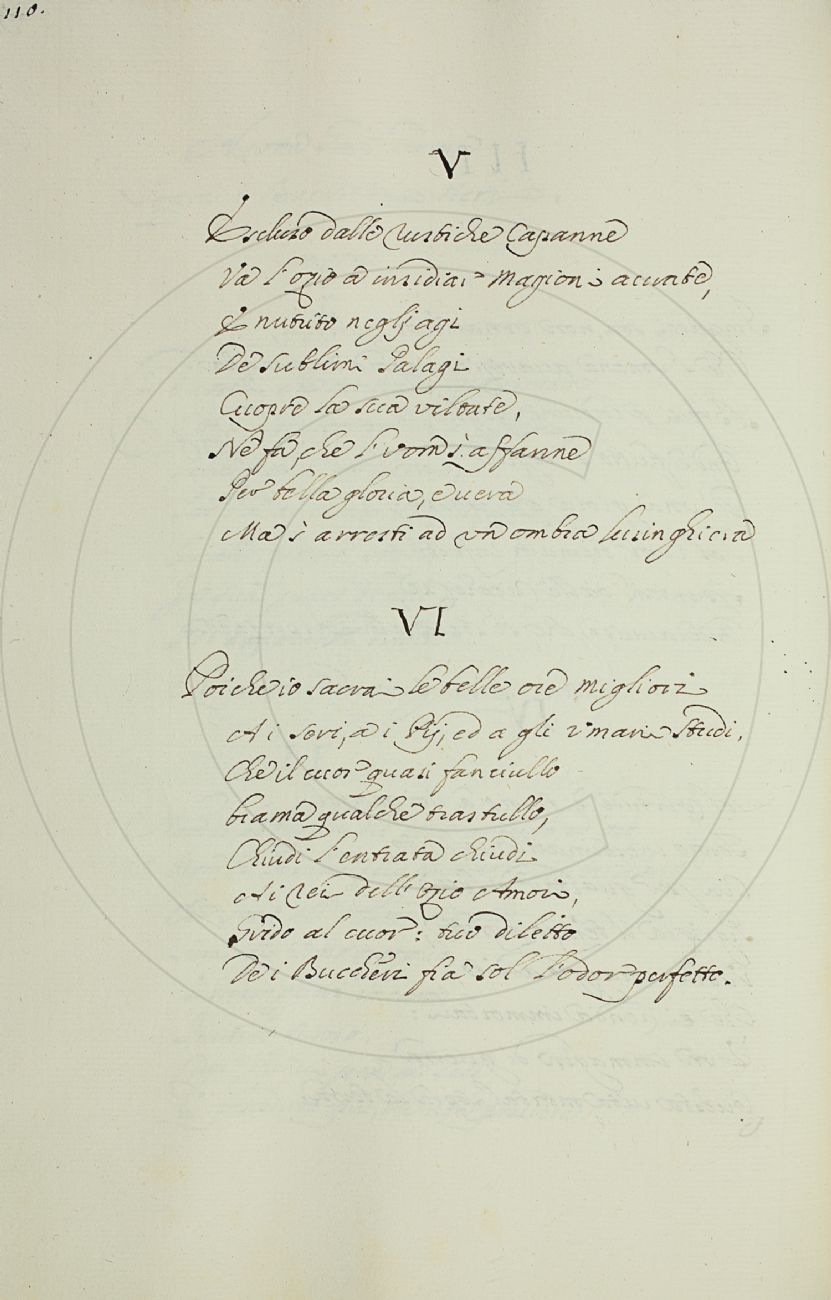 110.
V
Escluso dalle rustiche Capanne
Va l'ozio a insidiar Magioni aurate,
E nutrito negl'agi
De sublimi Palagi
Cuopre la sua viltate,
Ne fa, che l'uom s'affanne
Per bella gloria, e vera
Ma s'arresti ad un ombra lusinghiera
VI
Poiche io sacrai le belle ore migliori
Ai seri, a i Pij, ed a gli umani studi,
Che il cuor quasi fanciullo
brama qualche trastullo,
Chiudi l'entrata chiudi
Ai rei dell'Ozio Amori,
Grido al cuor: tuo diletto
De i Buccheri fia sol l'odor perfetto.